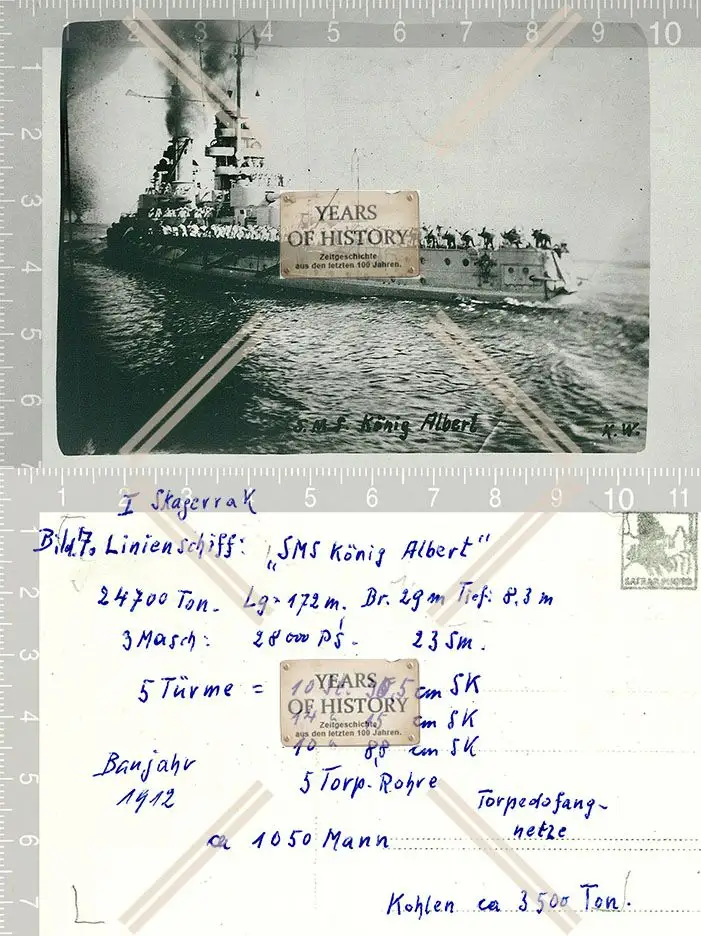 2 3 4 5 6 7 8 9 10
1
2
3
4
5
6
7
YEARS
OF HISTORY
Zeitgeschichte
aus den letzten 100 Jahren.
S.M.S. König Albert
K. W.
1 2 3 4 5 6 7 8 9 10 11
I Skagerrak
Bild 7. Linienschiff: „SMS König Albert"
24700 Ton. Lg = 172 m. Br. 29 m Tief: 8,3 m
3 Masch: 28000 PS. 23 Sm.
5 Türme = 10 St. 30,5 cm SK
14 " 15 cm SK
10 " 8,8 cm SK
YEARS
OF HISTORY
Zeitgeschichte
aus den letzten 100 Jahren.
Baujahr
1912
5 Torp.-Rohre
Torpedofang-
netze
ca 1050 Mann
Kohlen ca 3500 Ton.
2
3
4
5
6
7